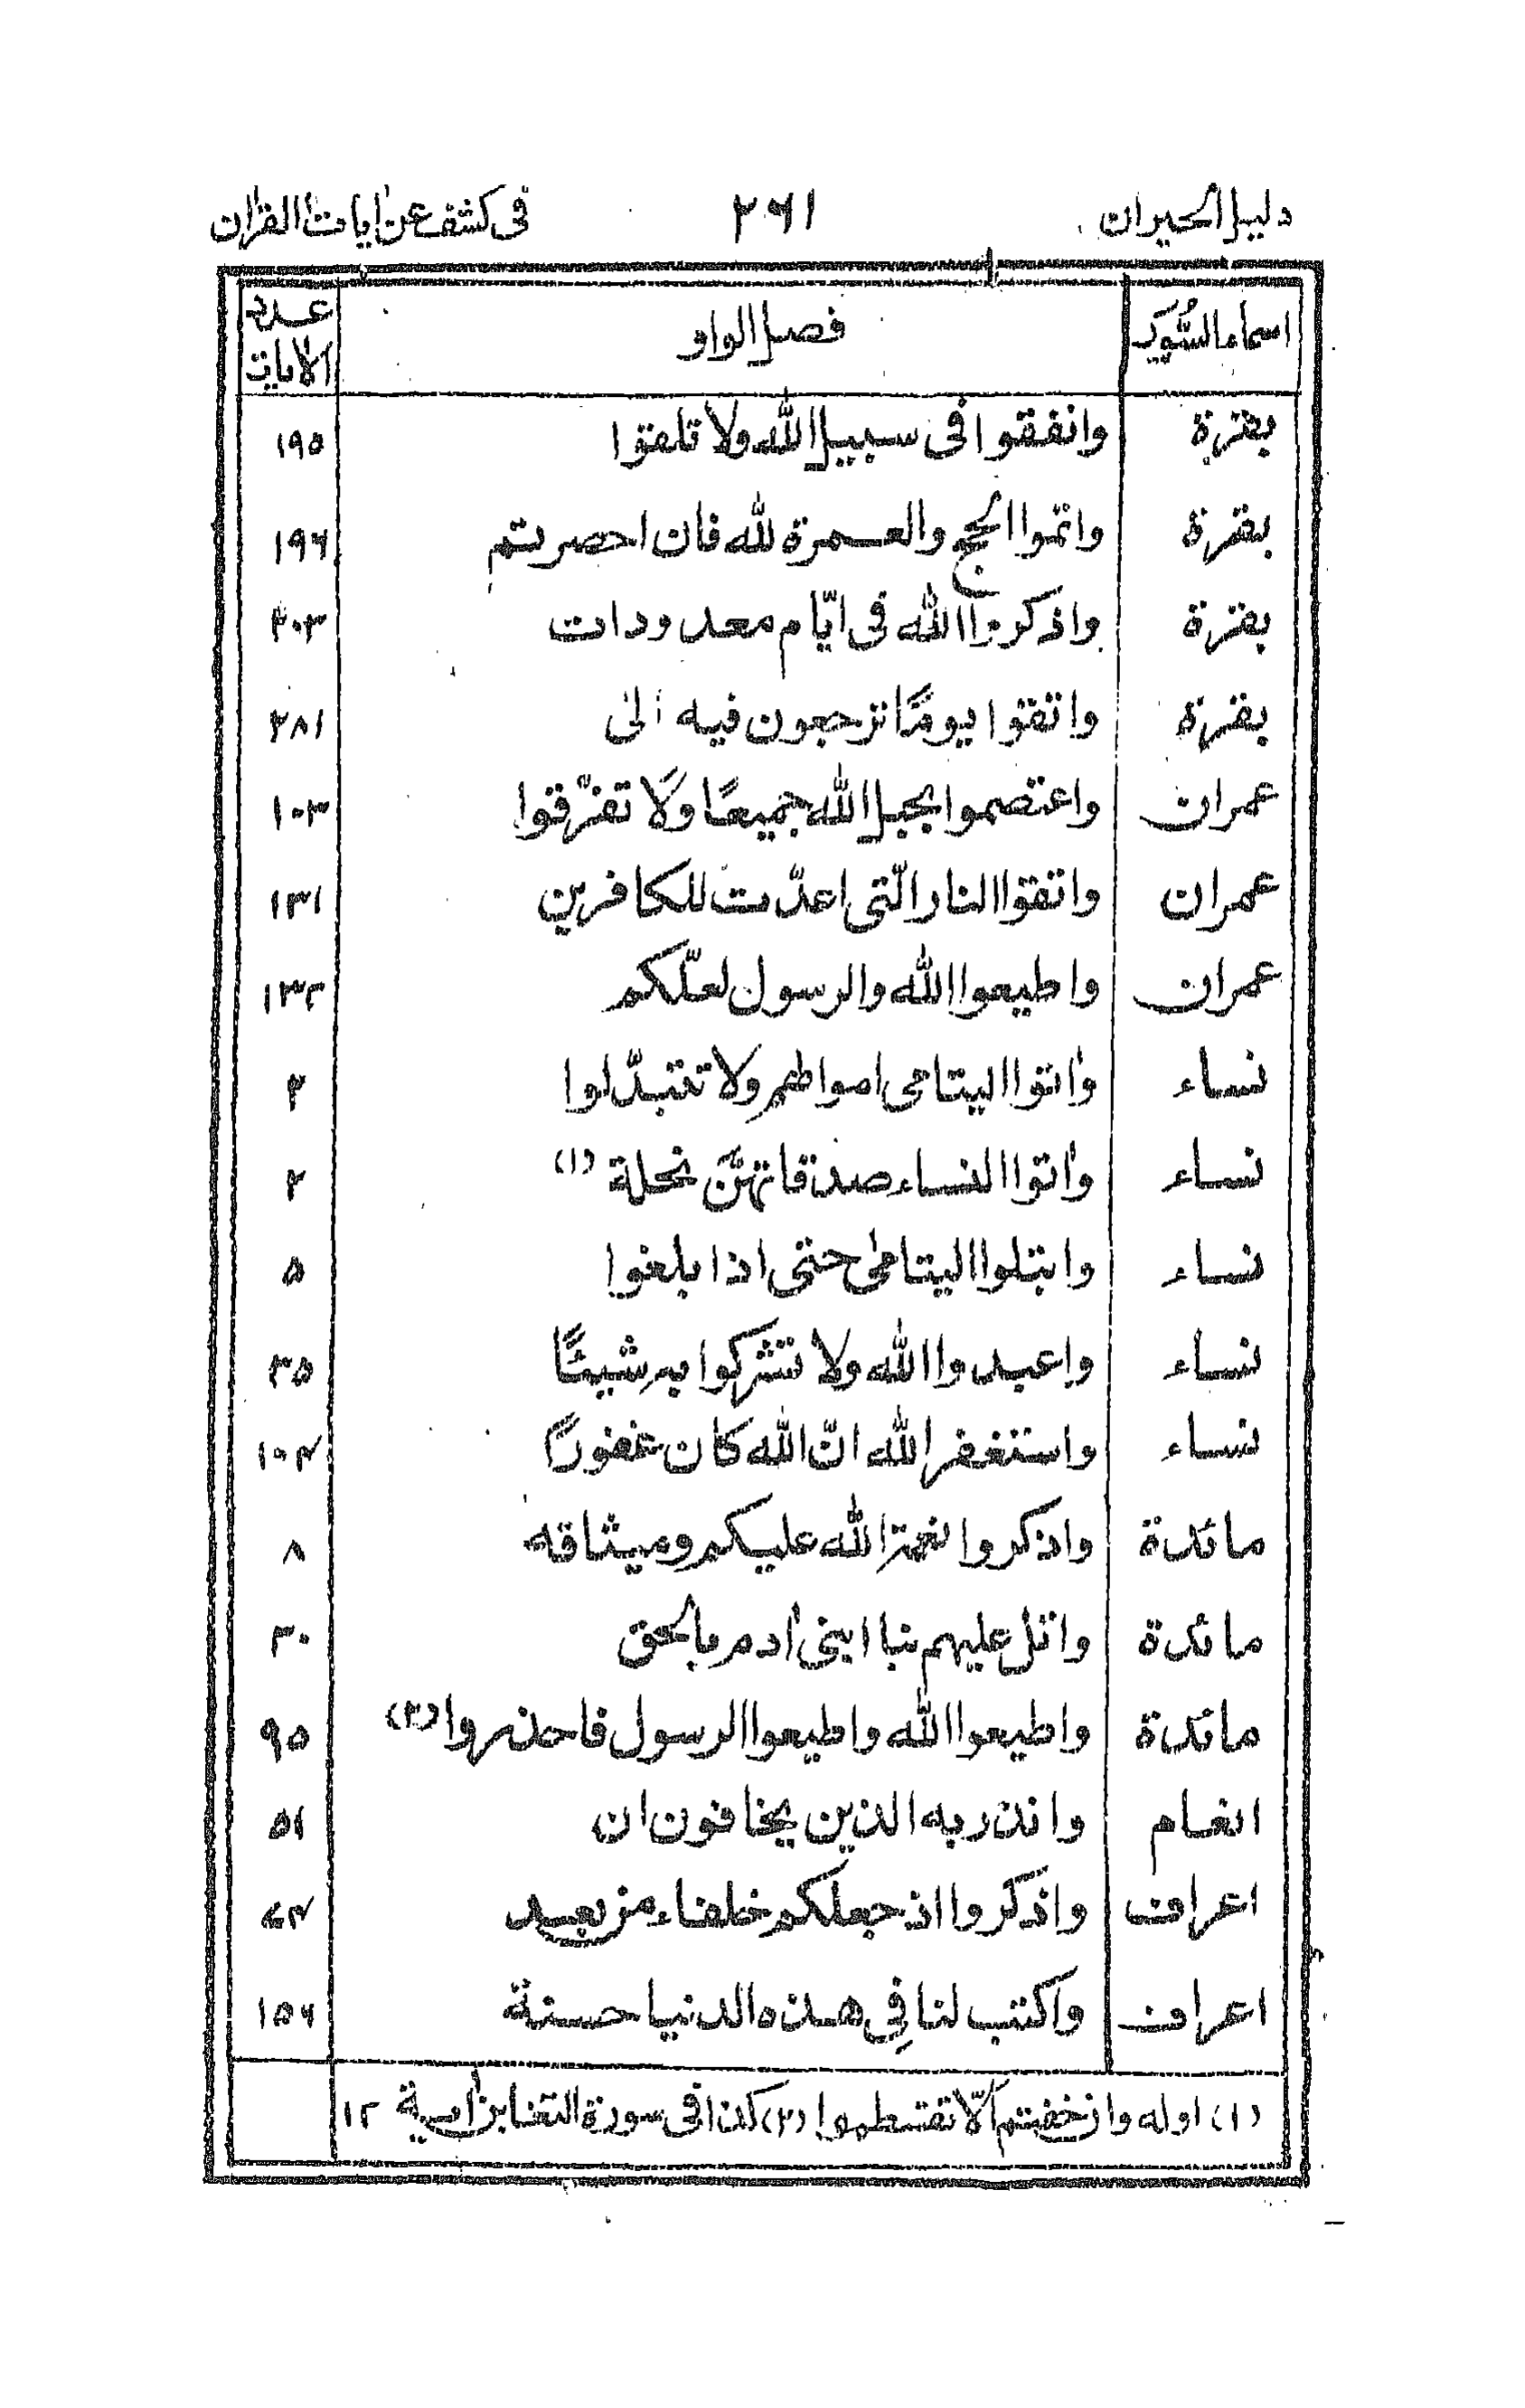 دليل الحيران ٢٦١ فى كشف عن اٰيات القراٰن
اسماء السُّور فصل الواو عدد الاٰيات
بقرة وانفقوا فى سبيل الله ولا تلقوا ١٩٥
بقرة واتموا الحج والعمرة لله فان احصرتم ١٩٦
بقرة واذكروا الله فى ايّام معدودات ٢٠٣
بقرة واتقوا يومًا ترجعون فيه الىٰ ٢٨١
عمران واعتصموا بحبل الله جميعًا ولا تفرّقوا ١٠٣
عمران واتقوا النار الّتى اعدّت للكافرين ١٣١
عمران واطيعوا الله والرسول لعلّكم ١٣٢
نساء واٰتوا اليتامى اموالهم ولا تتبدّلوا ٢
نساء واٰتوا النساء صدقاتهنّ نحلة (١) ٢
نساء وابتلوا اليتامىٰ حتى اذا بلغوا ٥
نساء واعبدوا الله ولا تشركوا به شيئًا ٣٥
نساء واستغفر الله انّ الله كان غفورًا ١٠٤
مائدة واذكروا نعمة الله عليكم وميثاقه ٨
مائدة واتل عليهم نبا ابنى اٰدم بالحق ٣٠
مائدة واطيعوا الله واطيعوا الرسول فاحذروا (٢) ٩٥
انعام وانذر به الذين يخافون ان ٥١
اعراف واذكروا اذ جعلكم خلفاء من بعد ٧٤
اعراف واكتب لنا فِى هذه الدنيا حسنة ١٥٦
(١) اوله وان خفتم الّا تقسطوا (٢) كذا فى سورة التغابن اٰية ١٢